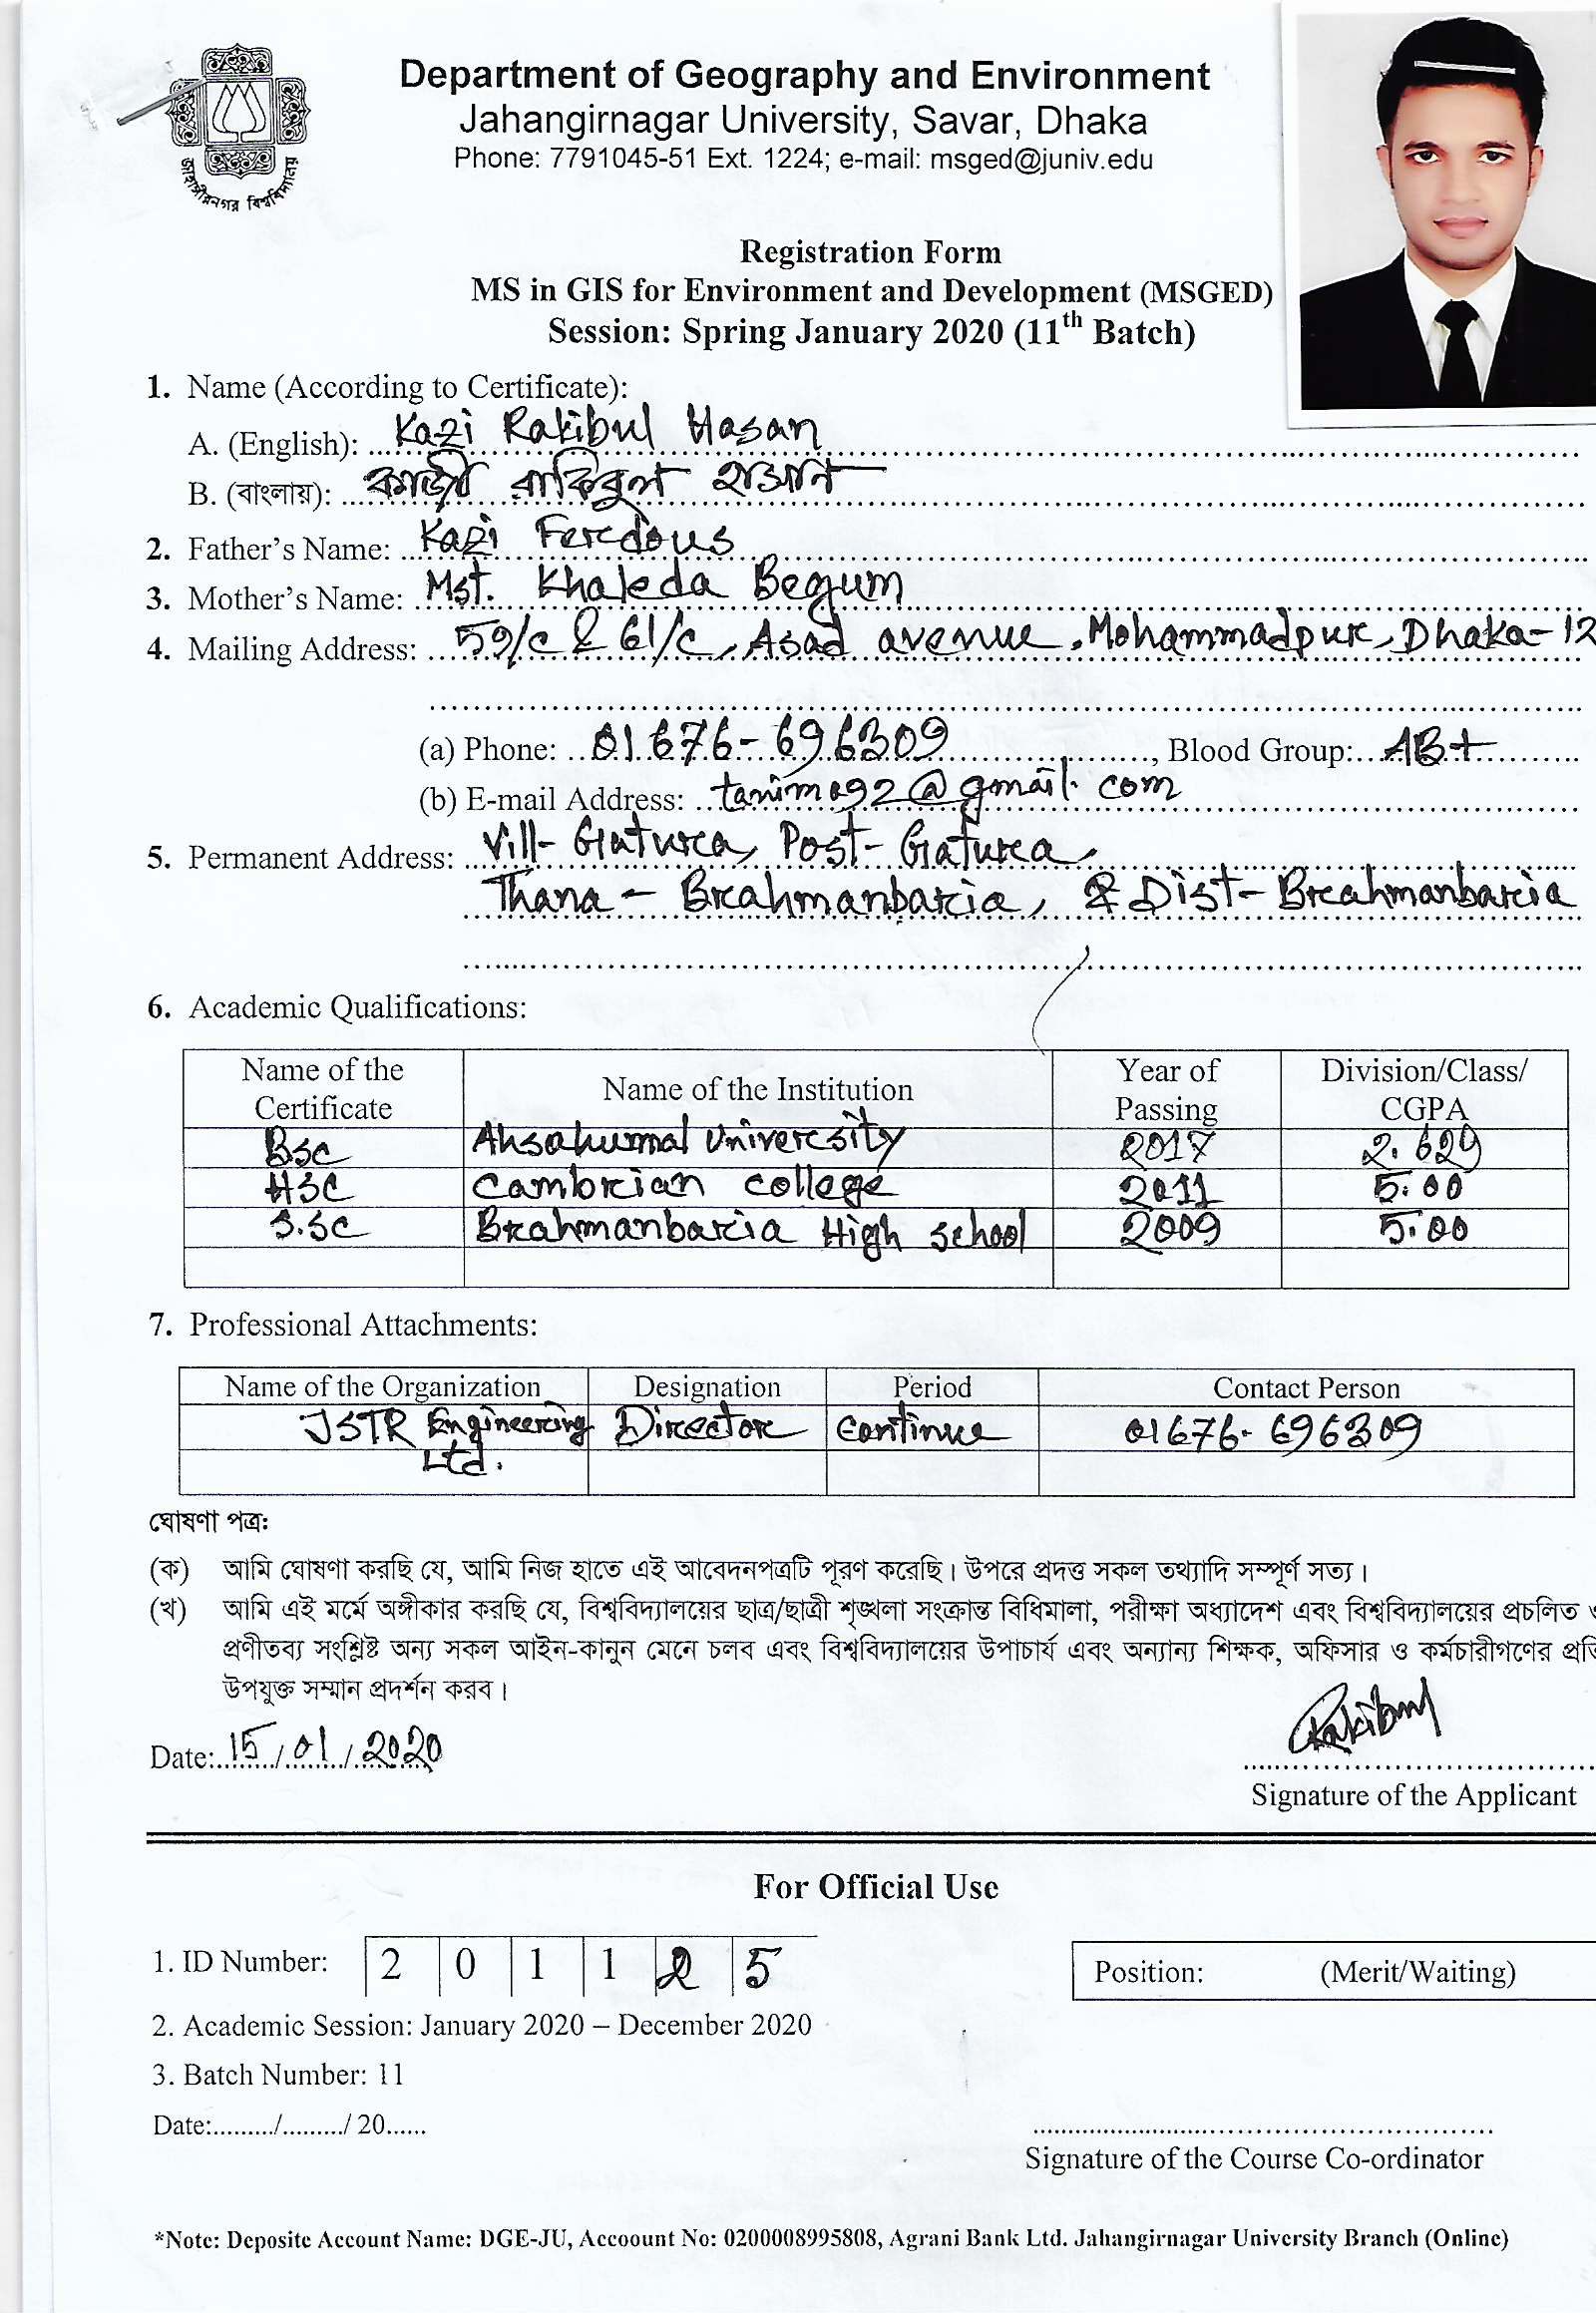 জাহাঙ্গীরনগর বিশ্ববিদ্যালয়
Department of Geography and Environment
Jahangirnagar University, Savar, Dhaka
Phone: 7791045-51 Ext. 1224; e-mail: msged@juniv.edu
Registration Form
MS in GIS for Environment and Development (MSGED)
Session: Spring January 2020 (11th Batch)
1. Name (According to Certificate):
A. (English): Kazi Rakibul Hasan
B. (বাংলায়): কাজী রাকিবুল হাসান
2. Father's Name: Kazi Feredous
3. Mother's Name: Mst. Khaleda Begum
4. Mailing Address: 59/C & 61/C, Asad avenue, Mohammadpur, Dhaka-12
(a) Phone: 01676-696309, Blood Group: AB+
(b) E-mail Address: @gmail.com
5. Permanent Address: Vill- Gatura, Post- Gatura,
Thana - Brahmanbaria, & Dist- Brahmanbaria
6. Academic Qualifications:
Name of the Certificate Name of the Institution Year of Passing Division/Class/ CGPA
BSc University 2017 2.629
HSC Cambrian college 2011 5.00
S.SC Brahmanbaria High school 2009 5.00
7. Professional Attachments:
Name of the Organization Designation Period Contact Person
JSTR Engineering Ltd. Director Continue 01676-696309
ঘোষণা পত্র:
(ক) আমি ঘোষণা করছি যে, আমি নিজ হাতে এই আবেদনপত্রটি পূরণ করেছি। উপরে প্রদত্ত সকল তথ্যাদি সম্পূর্ণ সত্য।
(খ) আমি এই মর্মে অঙ্গীকার করছি যে, বিশ্ববিদ্যালয়ের ছাত্র/ছাত্রী শৃঙ্খলা সংক্রান্ত বিধিমালা, পরীক্ষা অধ্যাদেশ এবং বিশ্ববিদ্যালয়ের প্রচলিত
প্রণীতব্য সংশ্লিষ্ট অন্য সকল আইন-কানুন মেনে চলব এবং বিশ্ববিদ্যালয়ের উপাচার্য এবং অন্যান্য শিক্ষক, অফিসার ও কর্মচারীগণের
উপযুক্ত সম্মান প্রদর্শন করব।
Rakibul
Date: 15/01/2020
Signature of the Applicant
For Official Use
1. ID Number: 2 0 1 1 2 5
Position: (Merit/Waiting)
2. Academic Session: January 2020 – December 2020
3. Batch Number: 11
Date:........./........./ 20......
Signature of the Course Co-ordinator
*Note: Deposite Account Name: DGE-JU, Accoount No: 0200008995808, Agrani Bank Ltd. Jahangirnagar University Branch (Online)